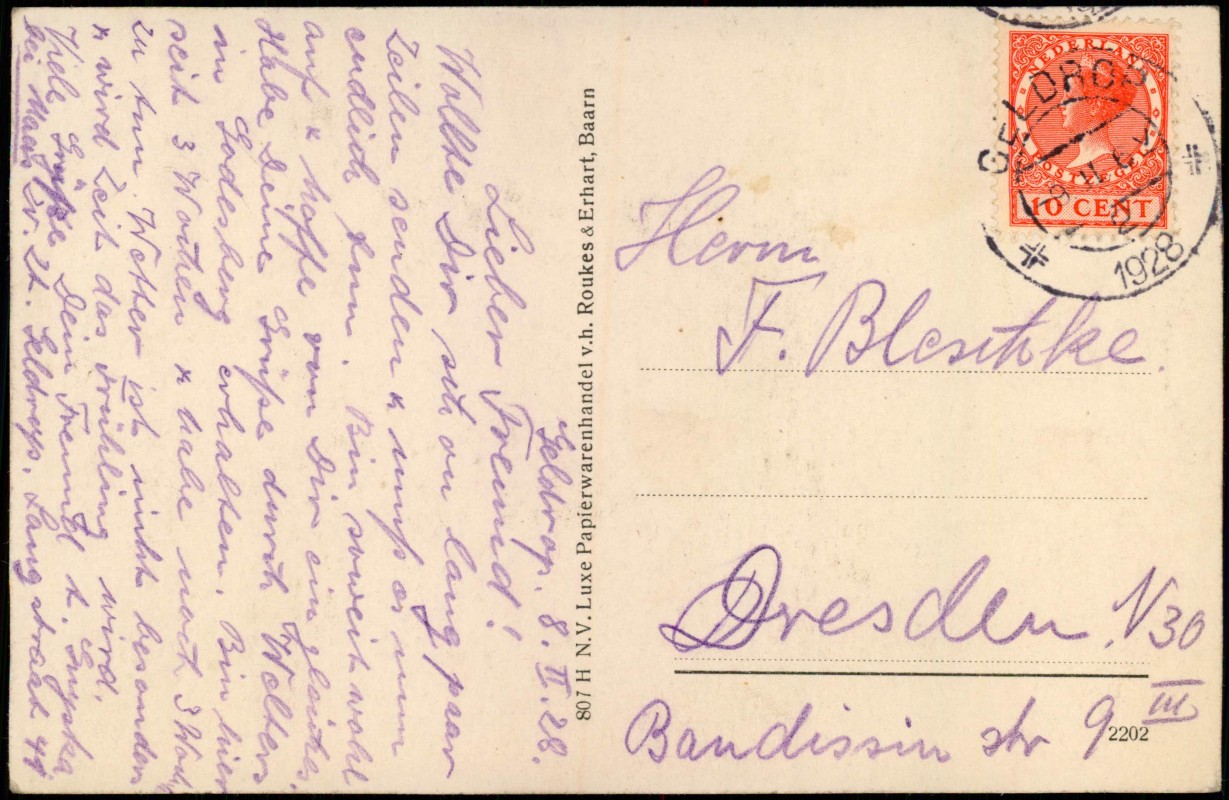 Geldrop. 8. II. 28.
Lieber Freund!
Wollte Dir schon lang paar
Zeilen senden u muß es nun
endlich tun. Bin soweit wohl
auf u hoffe von Dir ein gleiches.
Habe Deine Grüße durch Wolters
in Godesberg erhalten. Bin hier
seit 3 Wochen u habe noch 3 Woch.
zu tun. Wetter ist nicht besonders
u wird Zeit das Frühling wird.
Viele Grüße Dein Freund
bei Maas z. Zt. Geldrop. Langstraat
807 H N.V. Luxe Papierwarenhandel v.h. Roukes & Erhart, Baarn
NEDERLAND
POSTZEGEL
10 CENT
GELDROP
1928
Herrn
F. Bleschke.
Dresden N30
Baudissin str 9 III
2202